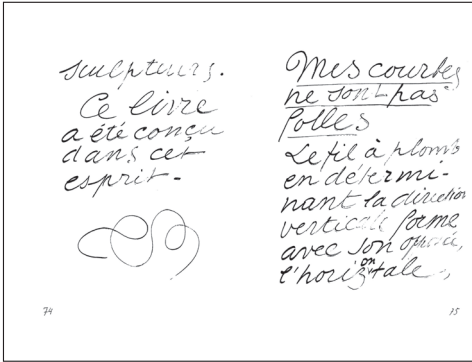 sculpteurs.
Ce livre
a été conçu
dans cet
esprit-
74
Mes courbes
ne sont pas
folles
Le fil à plomb
en détermi-
nant la direction
verticale forme
avec son opposée,
l'horizontale,
75